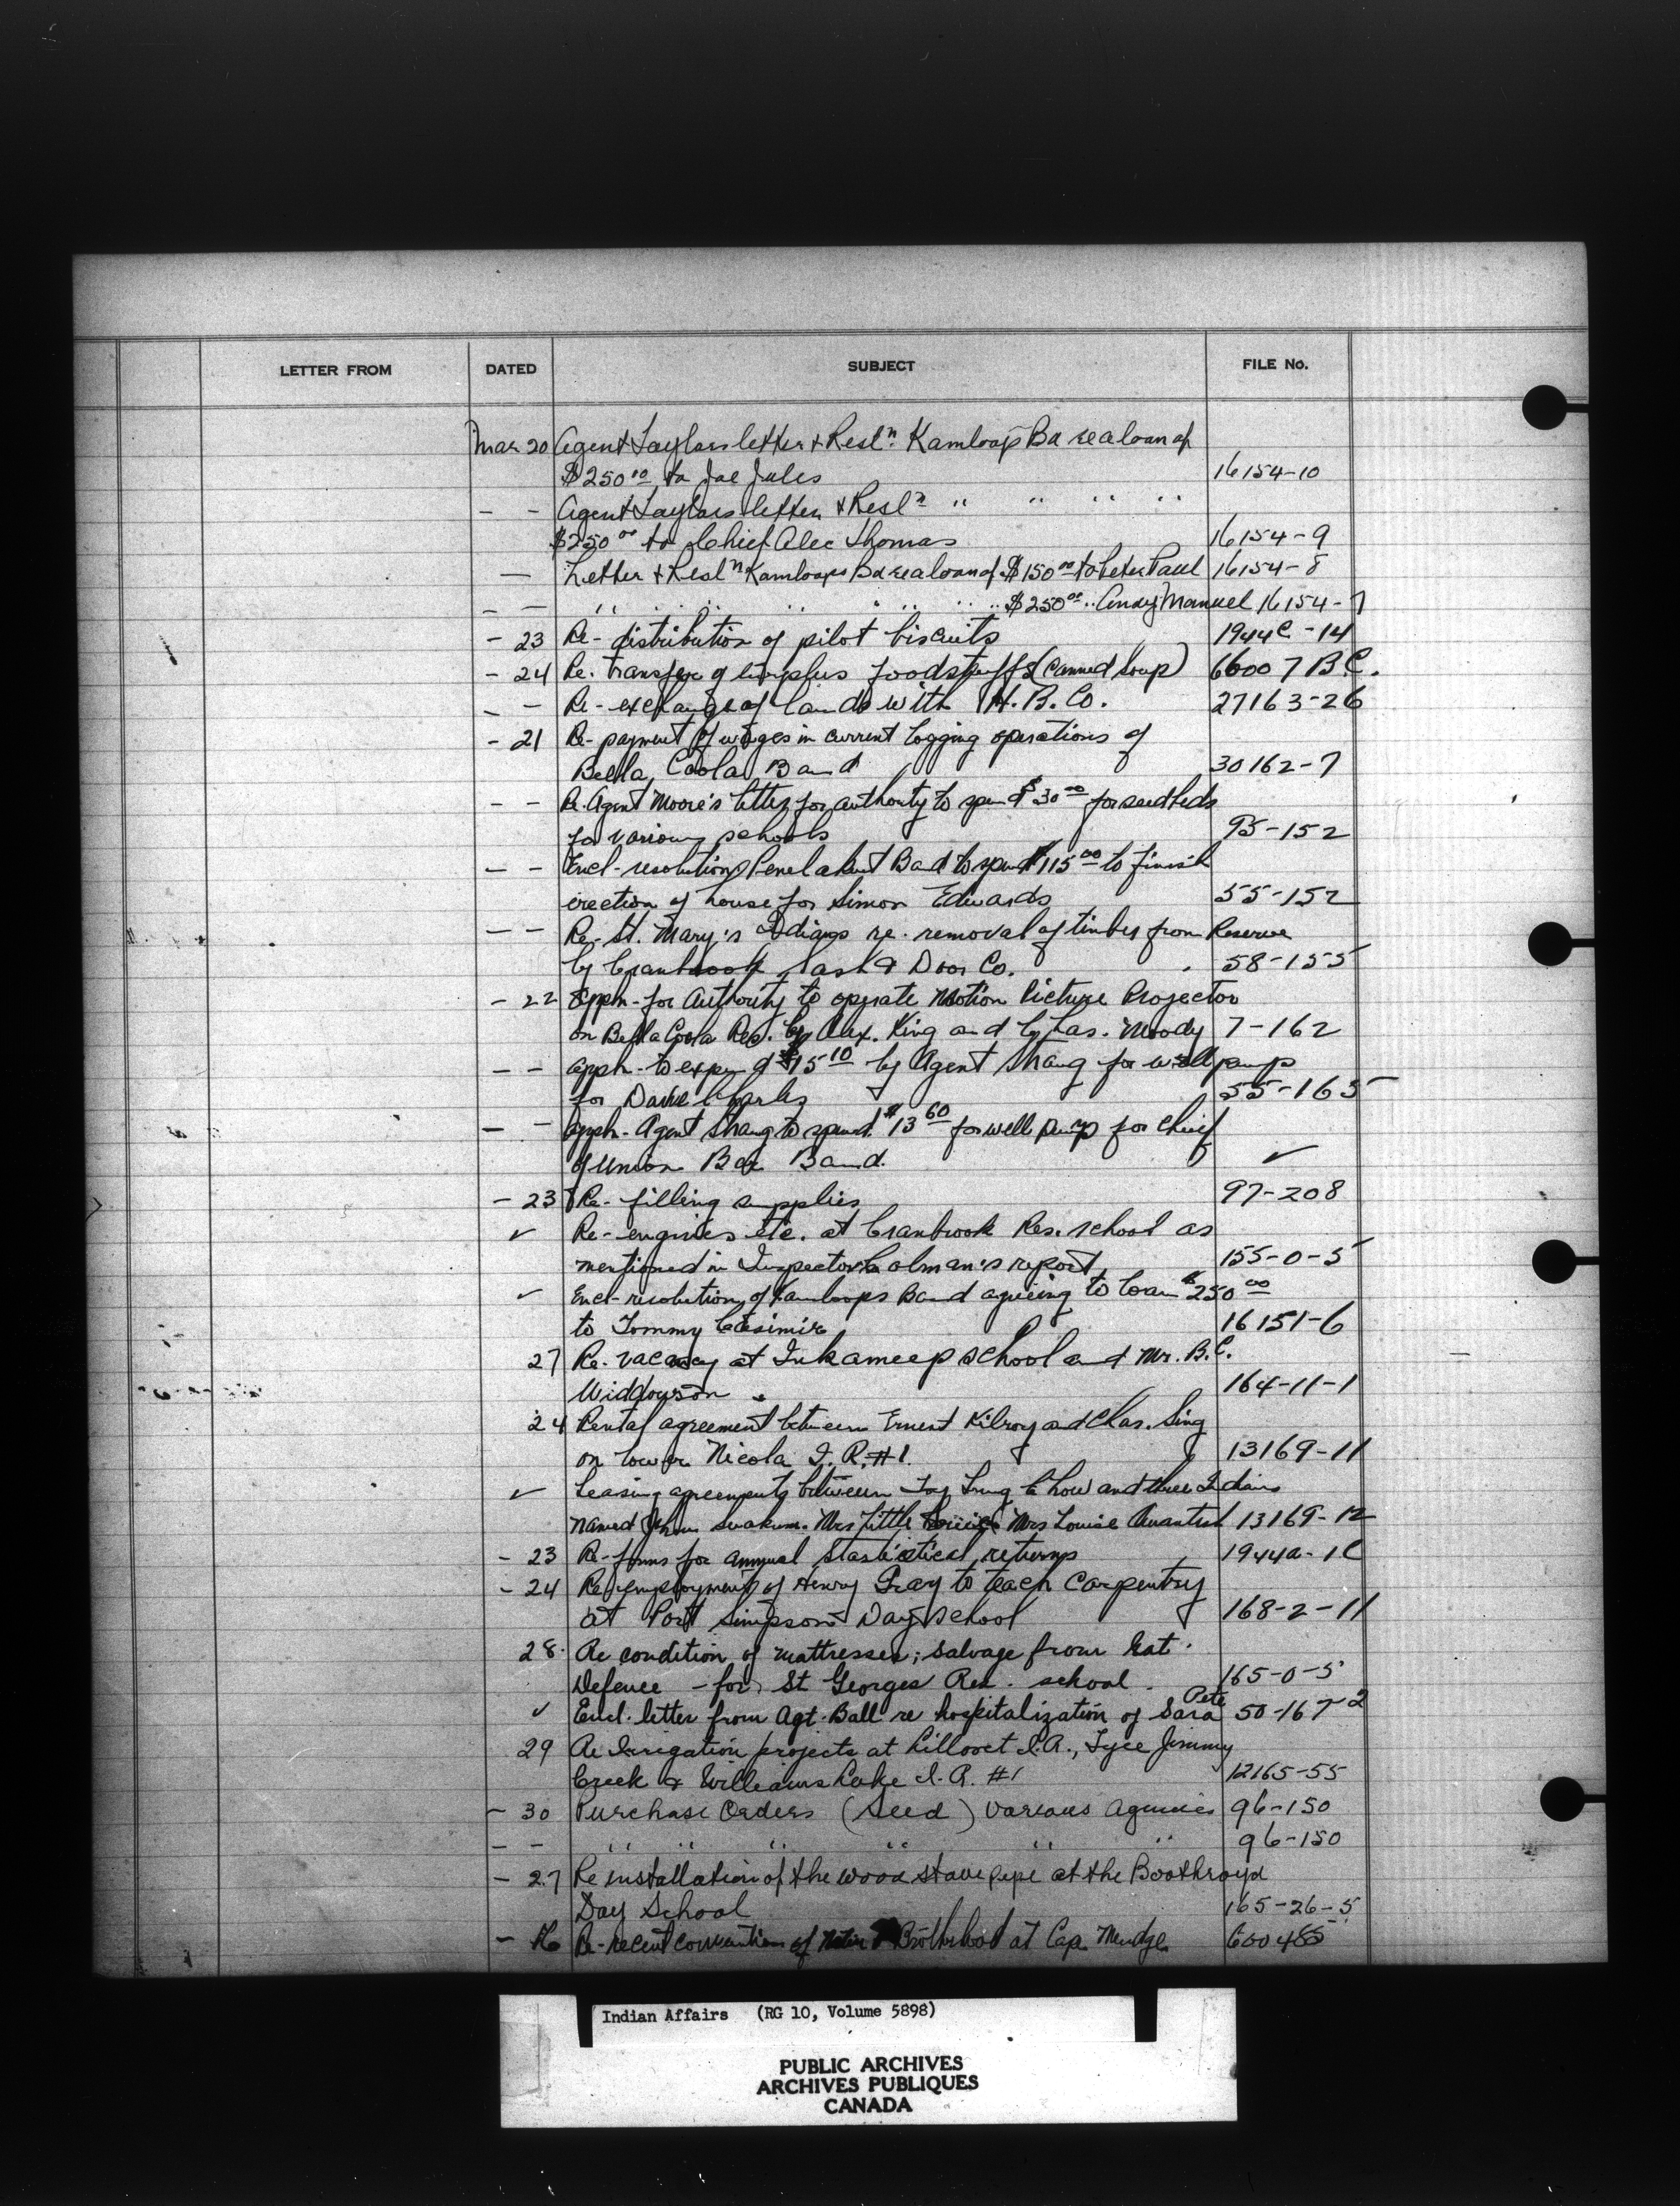 LETTER FROM DATED SUBJECT FILE No.
Mar 20 Agent Taylors letter & Resln. Kamloops Bd re a loan of
$250.00 to Joe Jules 16154-10
- - Agent Taylors letter & Resln " " " "
$250.00 to Chief Alec Thomas 16154-9
— Letter & Resln Kamloops Bd re a loan of $150.00 to Peter Paul 16154-8
- - " " " " " " " $250.00 " Andy Manuel 16154-7
- 23 Re- distribution of pilot biscuits 1944C-14
- 24 Re. transfer of surplus foodstuffs (Canned Soup) 66007 B.C.
- - Re- exchange of lands with H. B. Co. 27163-26
- 21 Re- payment of wages in current logging operations of
Bella Coola Band 30162-7
- - Re. Agent Moore's letter for authority to spend $30.00 for seedbeds
for various schools 95-152
- - Encl- resolution Penelakut Band to spend $115.00 to finish
erection of house for Simon Edwards 55-152
- - Re- St. Mary's Indians re. removal of timber from Reserve
by Cranbrook Sash & Door Co. 58-155
- 22 Appln- for Authority to operate Motion Picture Projector
on Bella Coola Res. by Alex. King and by Chas. Moody 7-162
- - Appln- to expend $15.10 by Agent Strang for well pump
for Dave Charles 55-165
- - Appln- Agent Strang to spend $13.60 for well pump for chief
of Union Bar Band. ✓
- 23 Re- filling supplies 97-208
✓ Re- engines etc. at Cranbrook Res. school as
mentioned in Inspector Colman's report 155-0-5
✓ Encl- resolution of Kamloops Band agreeing to loan $250.00
to Tommy Casimir 16151-6
27 Re. vacancy at Inkameep School and Mr. B.C.
Widdowson. 164-11-1
24 Rental agreement between Ernest Kilroy and Chas. Sing
on Lower Nicola I. R. #1. 13169-11
✓ Leasing agreements between Toy Tung Chow and three Indians
named John Suakum. Mrs Little Mrs Louise 13169-12
- 23 Re- forms for annual Stastistical returns 1944a-1C
- 24 Re employment of Henry Gray to teach Carpentry
at Port Simpson Day School 168-2-11
28. Re condition of mattresses; salvage from Nat.
Defence - for St Georges Res. school. 165-0-5
✓ Encl. letter from Agt. Ball re hospitalization of Sara Pete 50-167-2
29 Re Irrigation projects at Lillooet I.R., Tyee Jimmy
Creek & Williams Lake I. R. #1 12165-55
- 30 Purchase Orders (Seed) various Agencies 96-150
- - " " " " " " 96-150
- 27 Re installation of the wood stave pipe at the Boothroyd
Day School 165-26-5
- Re- recent convention of Native Brotherhood at Cap. Mudge
Indian Affairs (RG 10, Volume 5898)
PUBLIC ARCHIVES
ARCHIVES PUBLIQUES
CANADA